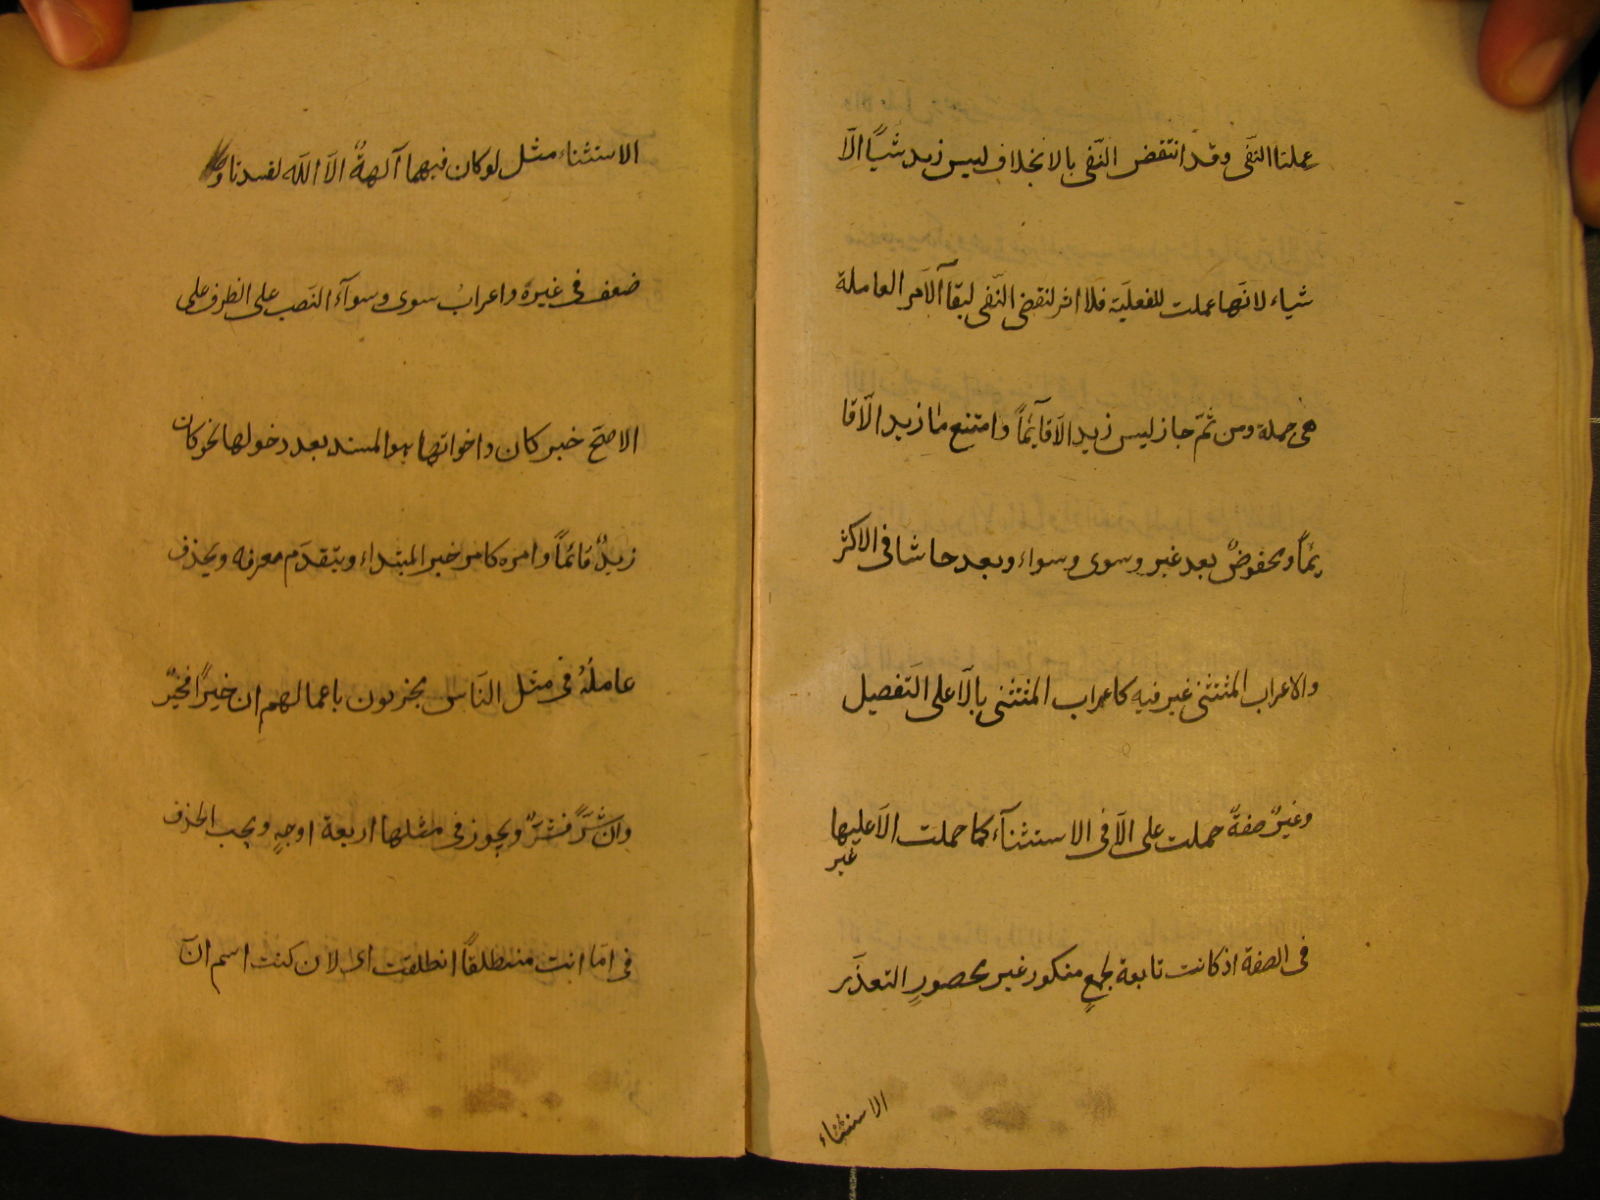 عملتا النّفى وقد انتقض النّفى بالا بخلاف ليس زيد شيئًا الّا
شياء لانّها عملت للفعليّة فلا اثر لنقض النّفى لبقآ الامر العاملة
هى جملة ومن ثمّ جاز ليس زيد الّا قآئمًا وامتنع ما زيد الّا قا
ئمًا ومخفوضٌ بعد غير وسوى وسواء وبعد حاشا فى الاكثر
والاعراب المثتثنى غير فيه كاعراب المثتثنى بالّا على التّفصيل
وغيرٌ صفةً حملت على الّا فى الاستثنآء كما حملت الّا عليها
غير
فى الصفة اذ كانت تابعة لجمعٍ منكور غير محصورٍ التعذّر
الاستثناء
الاستثناء مثل لو كان فيهما آلهةٌ الّا اللّه لفسدتا و
ضعف فى غيره واعرابُ سوى وسوآءَ النّصب على الظرف على
الاصحّ خبر كان واخواتها هو المسند بعد دخولها نحو كان
زيدٌ قائمًا وامره كامر خبر المبتداء ويتقدّم معرفه ويحذف
عاملُهُ فى مثل النّاس يجزيون باعمالهم ان خيرًا فخيرٌ
وان شرًّ فشرٌّ ويجوز فى مثلها اربعة اوجهٍ ويجب الحذف
فى امّا انت منطلقًا انطلقت اى لان كنت اسم انّ